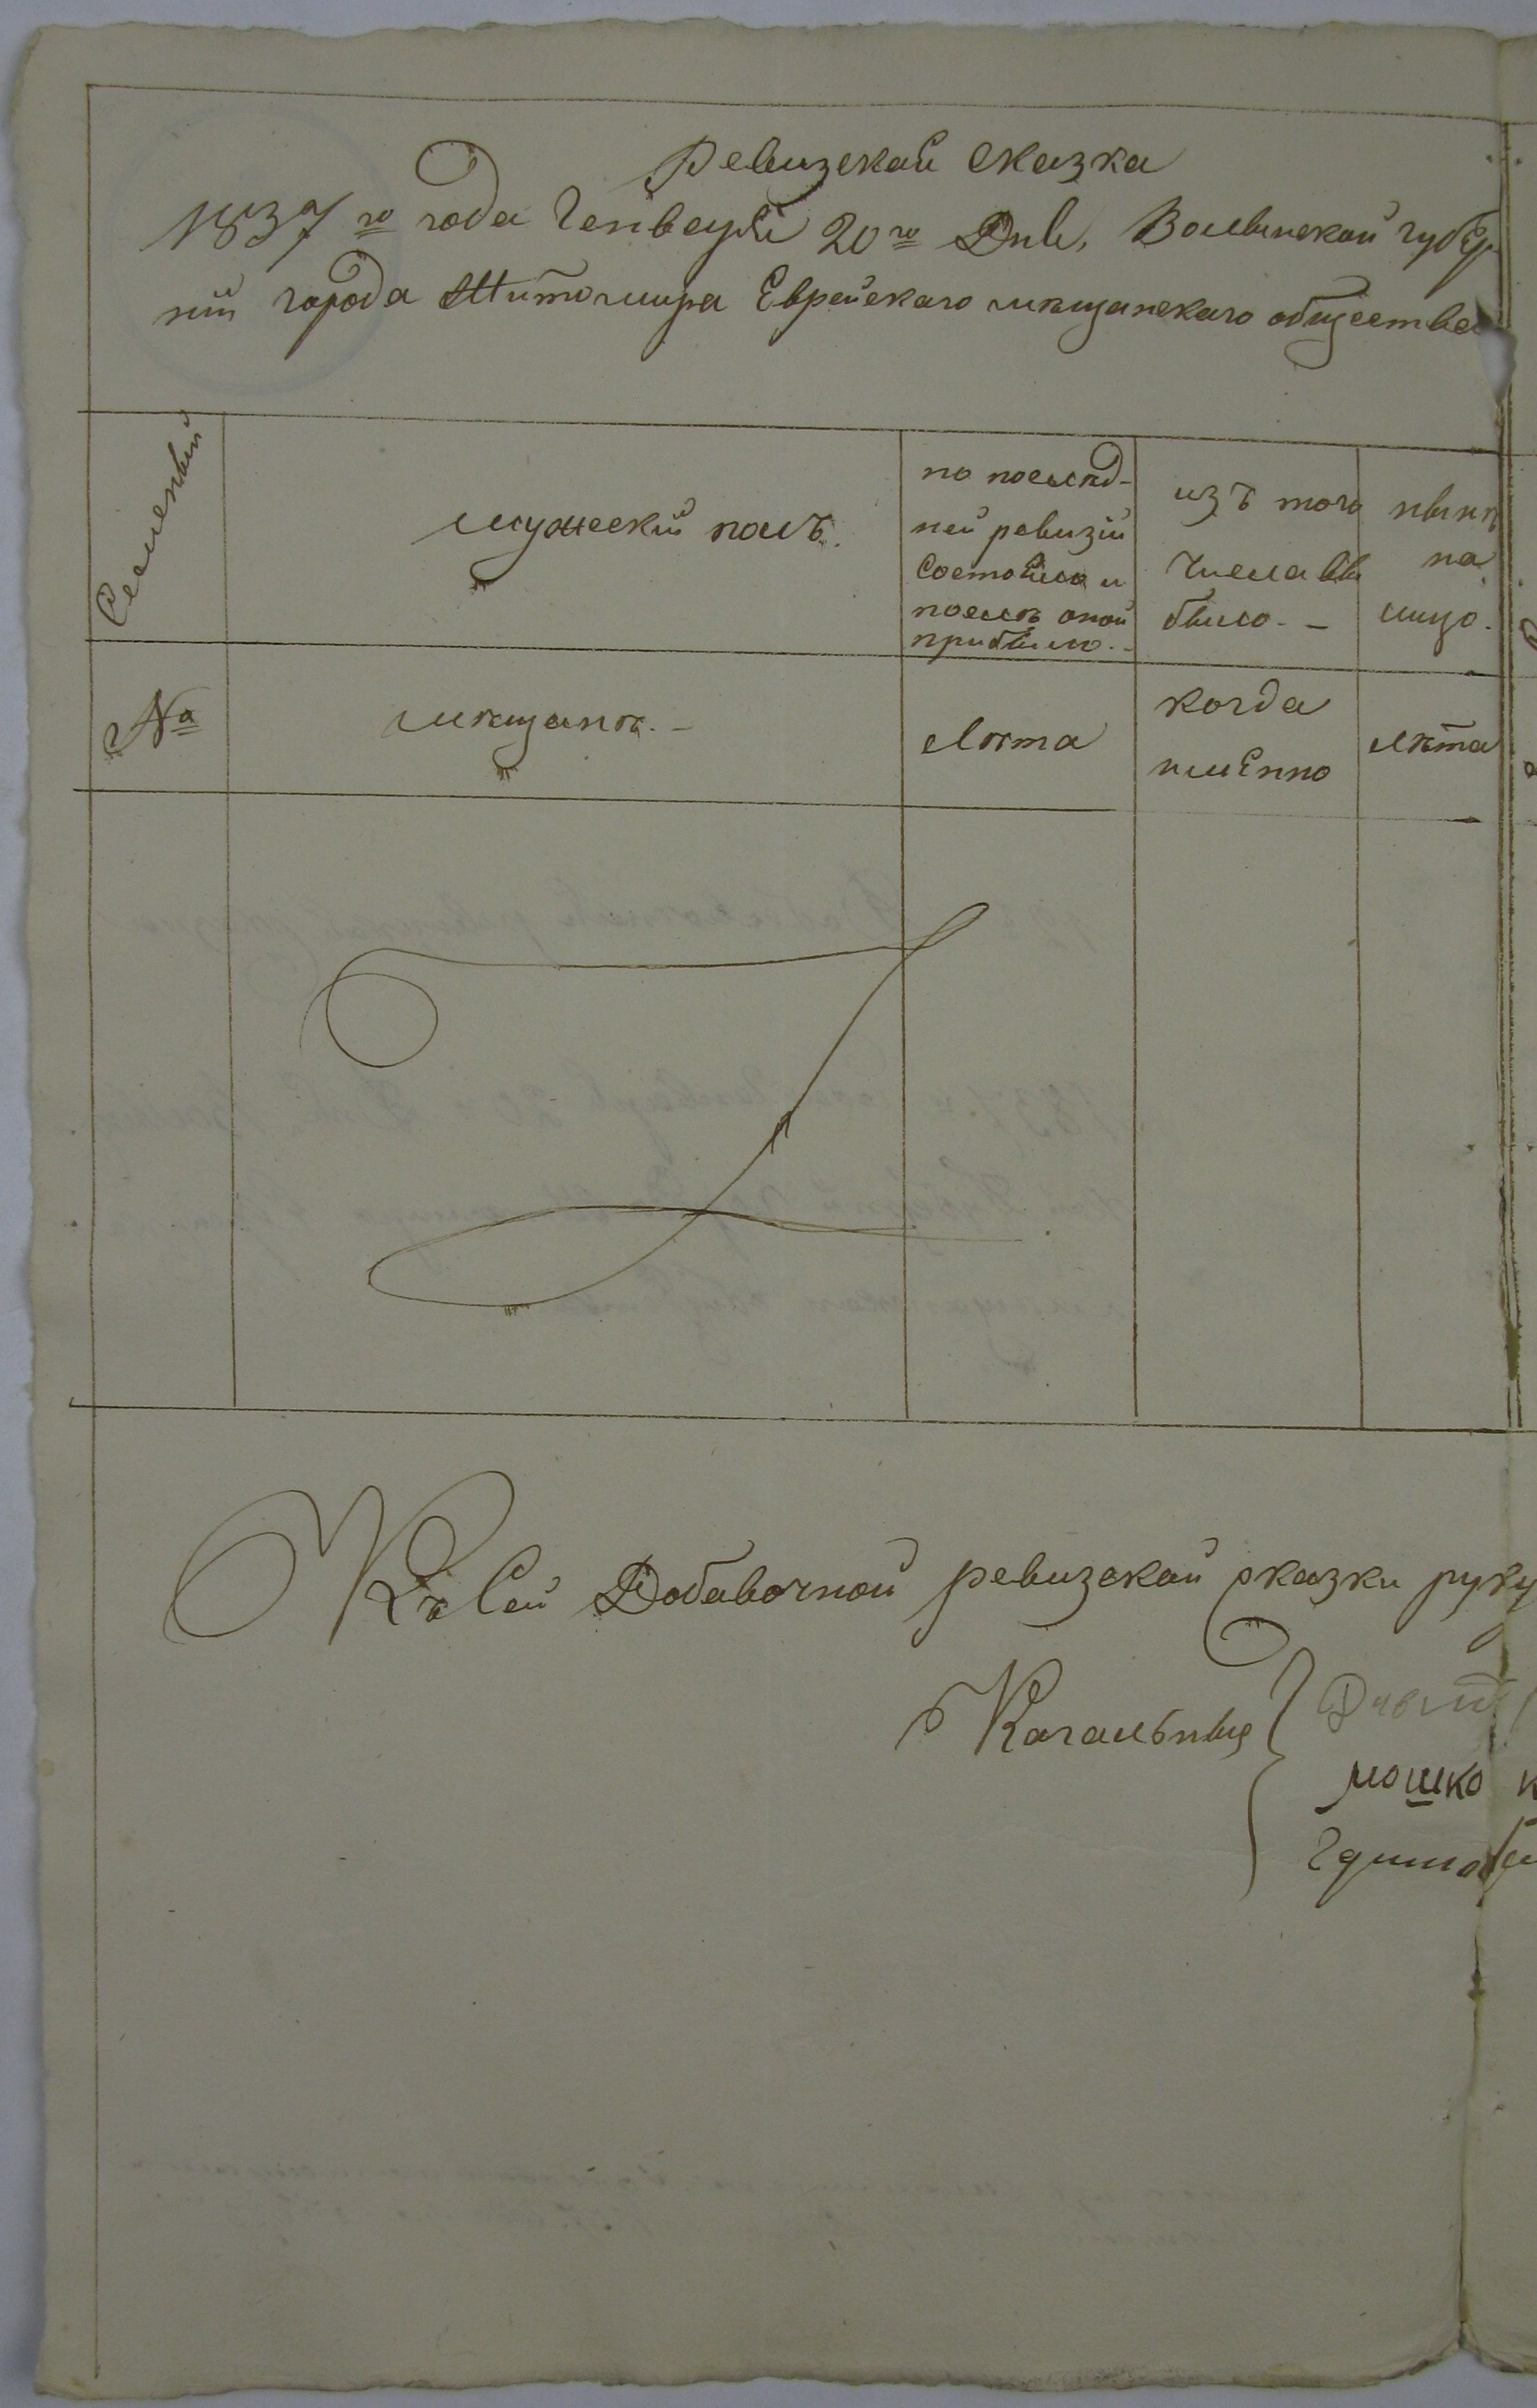 Ревизская сказка
1837го года Генваря 20го Дня, Волынской губер
ніи города Житомира Еврейскаго мѣщанскаго общества
Семейный
мужеский полъ.
по послѣд-
ней ревизіи
Состояло и
послѣ оной
прибыло.-
изъ того
Числа вы
было. -
нынѣ
на
лицо.
№
мѣщанѣ. -
Лѣта
когда
именно
лѣта
Къ Сей Добавочной ревизской сказки руку
Кагальные
мошко